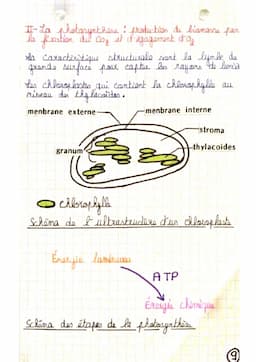 II- La photosynthèse : production de biomasse par
la fixation du CO2 et dégagement d'O2
la caractéristique structurale sont la limbe de
grande surface pour capter les rayons de
les chloroplastes qui contient la chlorophylle au
niveau des thylacoïdes.
menbrane externe
menbrane interne
stroma
granum
thylacoides
chlorophylle
Schéma de l'ultrastructure d'un chloroplaste
Énergie lumineuse
ATP
Énergie chimique
Schéma des étapes de la photosynthèse
(9)